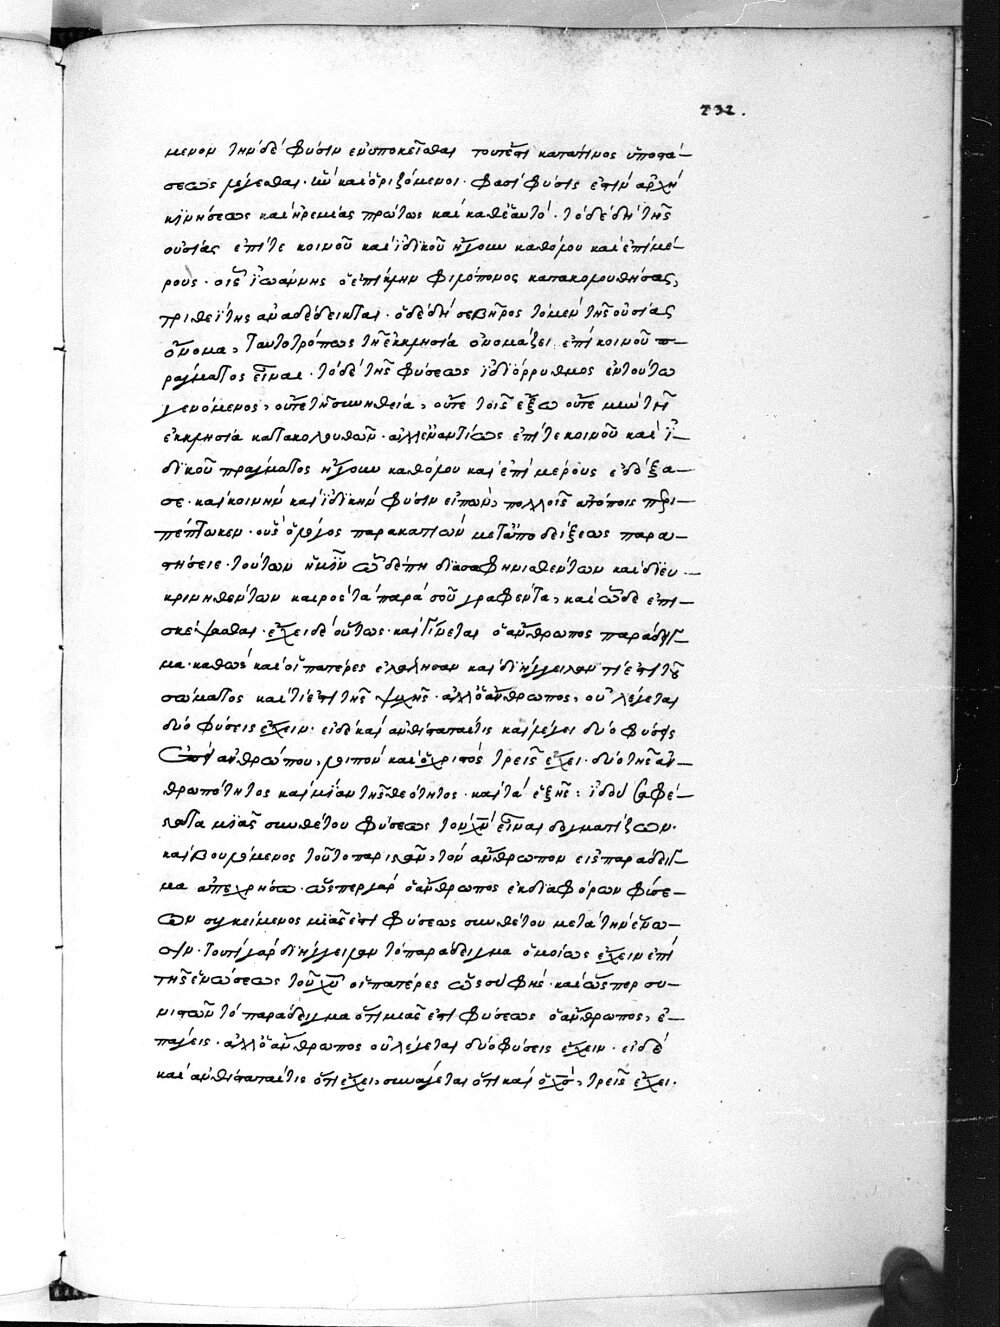 232.
μενον τὴν δὲ φύσιν ἐνυποκεῖσθαι τουτέστι κατά τινος ὑποστά-
σεως λέγεσθαι· ὡς καὶ ὁριζόμενοι· φασὶ φύσις ἐστὶν ἀρχὴ
κινήσεως καὶ ἠρεμίας πρώτως καὶ καθ' ἑαυτό· τὸ δὲ δὴ τῆς
οὐσίας ἐπί τε κοινοῦ καὶ ἰδικοῦ ἤγουν καθόλου καὶ ἐπὶ μέ-
ρους· οἷς ἰωάννης ὁ ἐπίκλην φιλόπονος κατακολουθήσας,
τριθεΐτης ἀναδέδεικται· ὁ δὲ δὴ σεβῆρος τὸ μὲν τῆς οὐσίας
ὄνομα, ταυτοτρόπως τῇ ἐκκλησία ὀνομάζει ἐπὶ κοινοῦ π-
ράγματος εἶναι· τὸ δὲ τῆς φύσεως ἰδιόρρυθμος ἐν τούτω
γενόμενος, οὔτε τῇ συνηθεία, οὔτε τοῖς ἔξω οὔτε μὴν τῇ
ἐκκλησία κατακολουθῶν· ἀλλ' ἐναντίως ἐπί τε κοινοῦ καὶ ἰ-
δικοῦ πράγματος ἤγουν καθόλου καὶ ἐπὶ μέρους ἐδόξα-
σε· καὶ κοινὴν καὶ ἰδικὴν φύσιν εἰπών, πολλοῖς ἀτόποις περι-
πέπτωκεν· οὓς ὁ λόγος παρακατιὼν μετὰ ἀποδείξεως παρα-
στήσειε· τούτων ἡμῖν ὧδέ πη διασαφηνισθέντων καὶ διευ-
κρινηθέντων καιρὸς τὰ παρὰ σοῦ γραφέντα, καὶ ὧδε ἐπι-
σκέψασθαι· ἔχει δὲ οὕτως· καὶ γίνεται ὁ ἄνθρωπος παράδειγ-
μα· καθὼς καὶ οἱ πατέρες ἐλάλησαν καὶ διήγγειλαν τί ἐστι τοῦ
σώματος καὶ τί ἐστι τῆς ψυχῆς· ἀλλ' ὁ ἄνθρωπος, οὐ λέγεται
δύο φύσεις ἔχειν· εἰ δὲ καὶ ἀνθίσταταί τις καὶ λέγει δύο φύσεις
ἐπὶ ἀνθρώπου, λοιπὸν καὶ ὁ χριστὸς τρεῖς ἔχει· δύο τῆς ἀν-
θρωπότητος καὶ μίαν τῆς θεότητος· καὶ τὰ ἑξῆς: ἰδοὺ σαφέ-
στατα μιᾶς συνθέτου φύσεως τὸν χν εἶναι δογματίζων·
καὶ βουλόμενος τοῦτο παριστᾶν, τὸν ἄνθρωπον εἰς παράδειγ-
μα ἀπεχρήσω· ὥσπερ γὰρ ὁ ἄνθρωπος ἐκ διαφόρων φύσε-
ων συγκείμενος μιᾶς ἐστι φύσεως συνθέτου μετὰ τὴν ἕνω-
σιν· τουτὶ γὰρ διήγγειλαν τὸ παράδειγμα ὁμοίως ἔχειν ἐπὶ
τῆς ἑνώσεως τοῦ χυ οἱ πατέρες ὡς σὺ φής· καὶ ὥσπερ συ-
νιστῶν τὸ παράδειγμα ὅτι μιᾶς ἐστι φύσεως ὁ ἄνθρωπος, ἐ-
πάγεις· ἀλλ' ὁ ἄνθρωπος οὐ λέγεται δύο φύσεις ἔχειν· εἰ δὲ
καὶ ἀνθίσταταί τις ὅτι ἔχει, συνάγεται ὅτι καὶ ὁ χς, τρεῖς ἔχει·